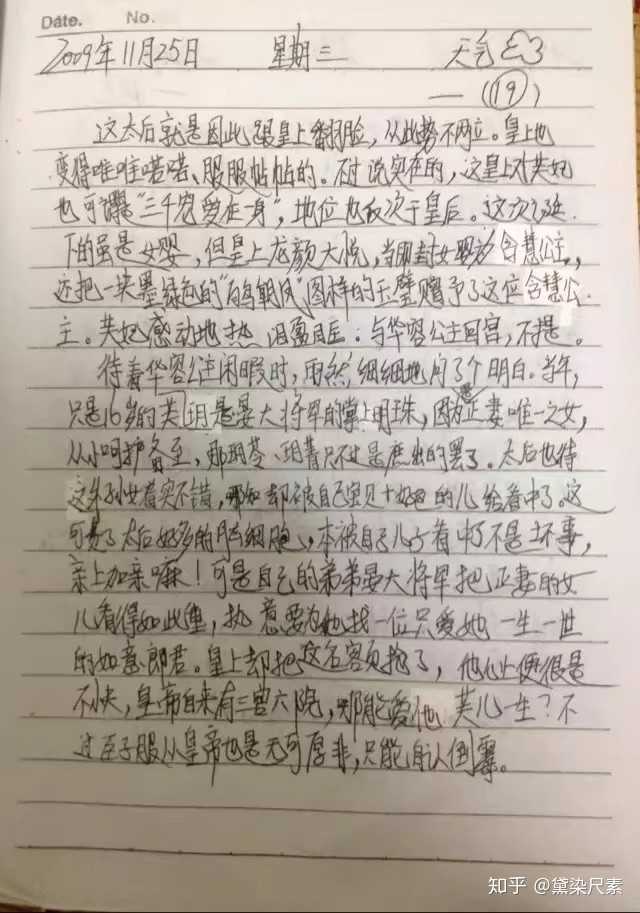 Date. No.
2009年11月25日 星期三 天气
一(19)
这太后就是因此跟皇上翻脸,从此势不两立。皇上也
变得唯唯喏喏、服服帖帖的。不过说实在的,这皇上对芙妃
也可谓是“三千宠爱在一身”,地位也仅次于皇后。这次诞
下的虽是女婴,但皇上龙颜大悦,当即封女婴为含慧公主,
还把一块墨绿色的“百鸟朝凤”图样的玉璧赠予了这位含慧公
主。芙妃感动地热泪盈眶。与华容公主回宫,不提。
待着华容公主闲暇时,雨然细细地问了个明白。当年,
只是16岁的芙玥是晏大将军的掌上明珠,因为是正妻唯一之女,
从小呵护备至,那玥苓、玥菁只不过是庶出的罢了。太后也待
这外孙女着实不错,哪知却被自己宝贝十好几的儿给看中了。这
可费了太后好多的脑细胞,本被自己儿子看中了不是坏事,
亲上加亲嘛!可是自己的弟弟晏大将军把正妻的女
儿看得如此重,执意要为她找一位只爱她一生一世
的如意郎君。皇上却把这名客负抢了,他心上便很是
不快,皇帝自来有三宫六院,哪能爱他芙儿一生?不
过臣子服从皇帝也是无可厚非,只能自认倒霉。
知乎 @黛染尺素